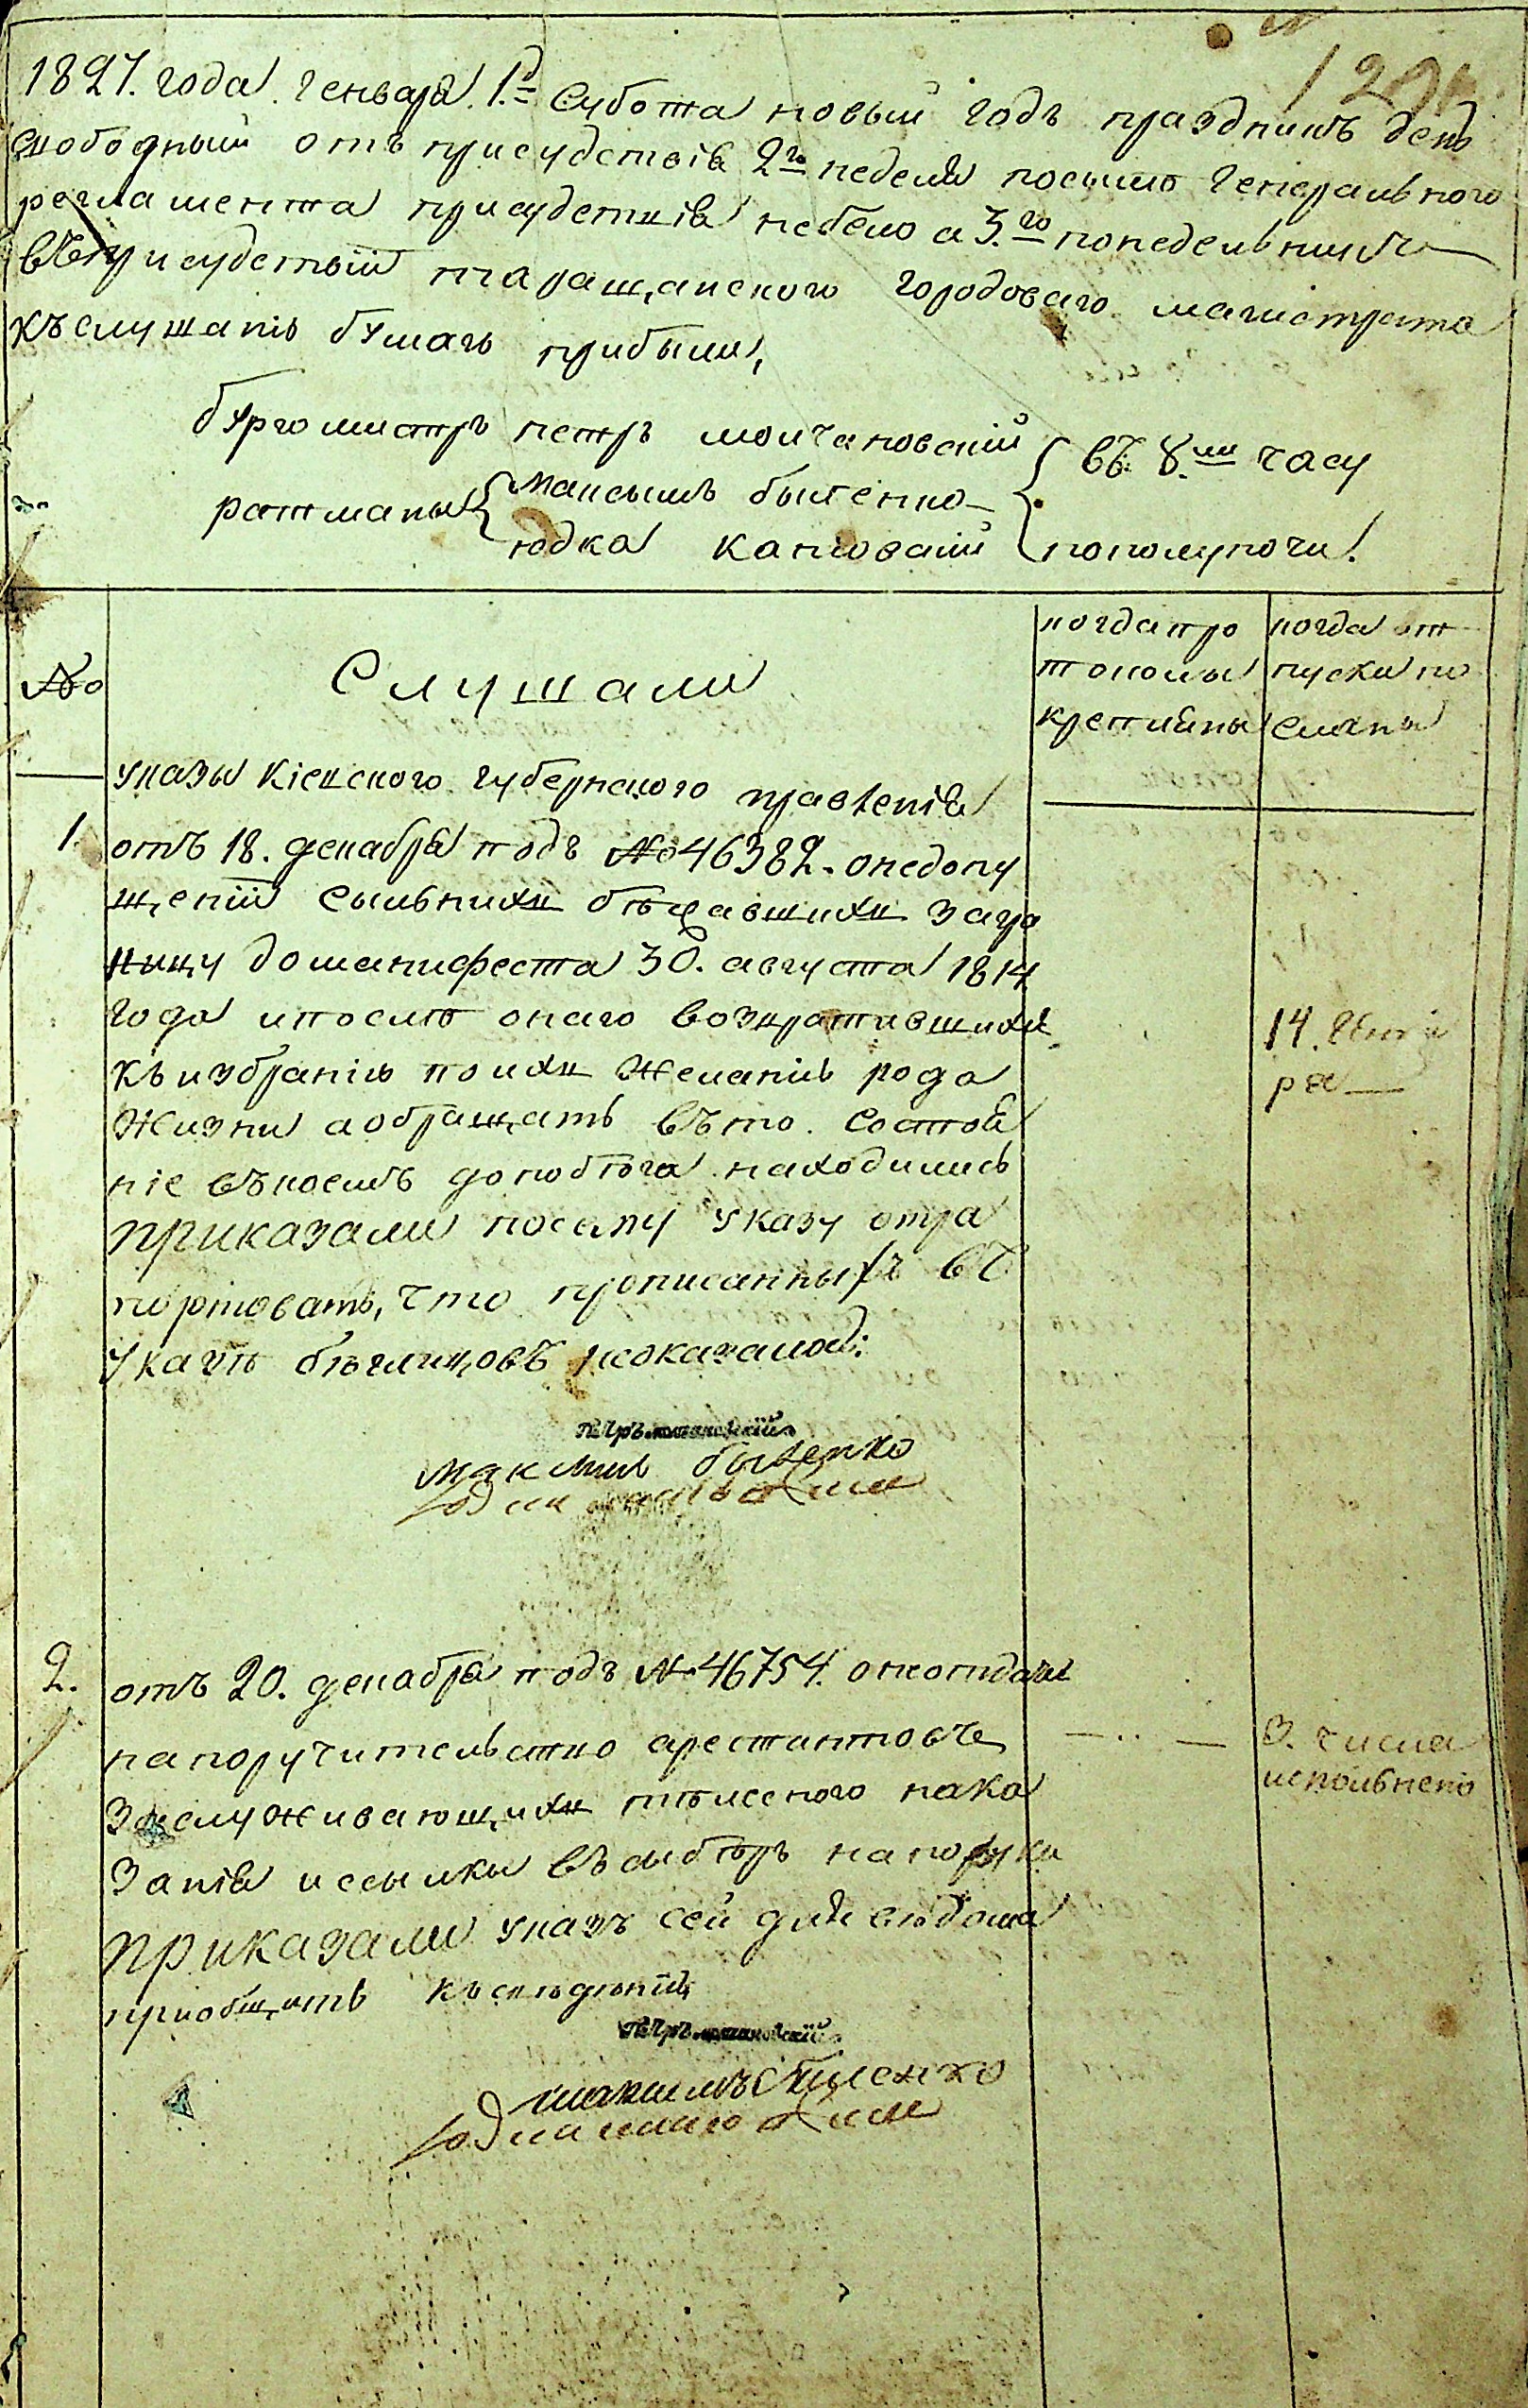 1827. года. генваря. 1.е Субота новый годъ праздникъ день
свободный отъ присудствія 2го неделя посиле Генеральнаго
регламента присудствія небыло а 3.го понедельникъ
въ присудствіи таращанского городоваго магистрата
къ слушанію бумагъ прибыли,
бургомистръ петръ молчановскій
ратманы максымъ быленко
юдка каневскій
въ 8.мъ часу
пополуночи.
№
Слушали
когда про
токолы
крепильны
когда от
пуски по
сланы
указы кіевского губернского правленія
1. отъ 18. декабря подъ №46382. онедопу
щеніи сыльнихъ бѣжавшихъ загра
ницу доманифеста 30. августа 1814
года ипосле онаго возвратившихъ
къ избранію поихъ желанію рода
жизни а обращать въ то. Состоя
ніе въ коемъ допобѣга находились
приказали посему указу отра
портовать, что прописанныхъ въ
указѣ бѣглицовъ неоказалось:
14. Генва
ря
петръ молчановскій
максимъ быленко
2. отъ 20. декабря подъ №46754. онеотдачи
напоручительство арестантовъ
заслуживающихъ тѣлесного нака
занія иссылки въ сыбѣръ напоруки
приказали указъ сей для вѣдома
приобщить къ сведѣнію
3. числа
исполнено
петръ молчановскій
максимъ быленко